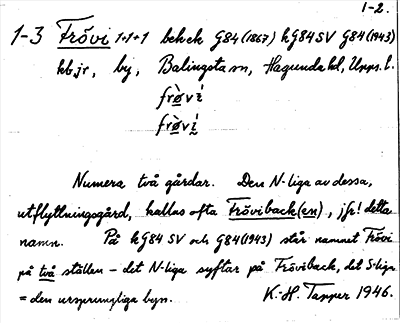 1-2.
1-3 Frövi 1+1+1 bek ek G84 (1867) k G84 SV G84 (1943)
kb, jr, by, Balingsta sn, Hagunda hd, Upps. l.
Numera två gårdar. Den N-liga av dessa,
utflyttningsgård, kallas ofta Fröviback(en), jfr! detta
namn. På k G84 SV och G84 (1943) står namnet Frövi
på två ställen – det N-liga syftar på Fröviback, det S-liga
= den ursprungliga byn. K.-H. Tapper 1946.